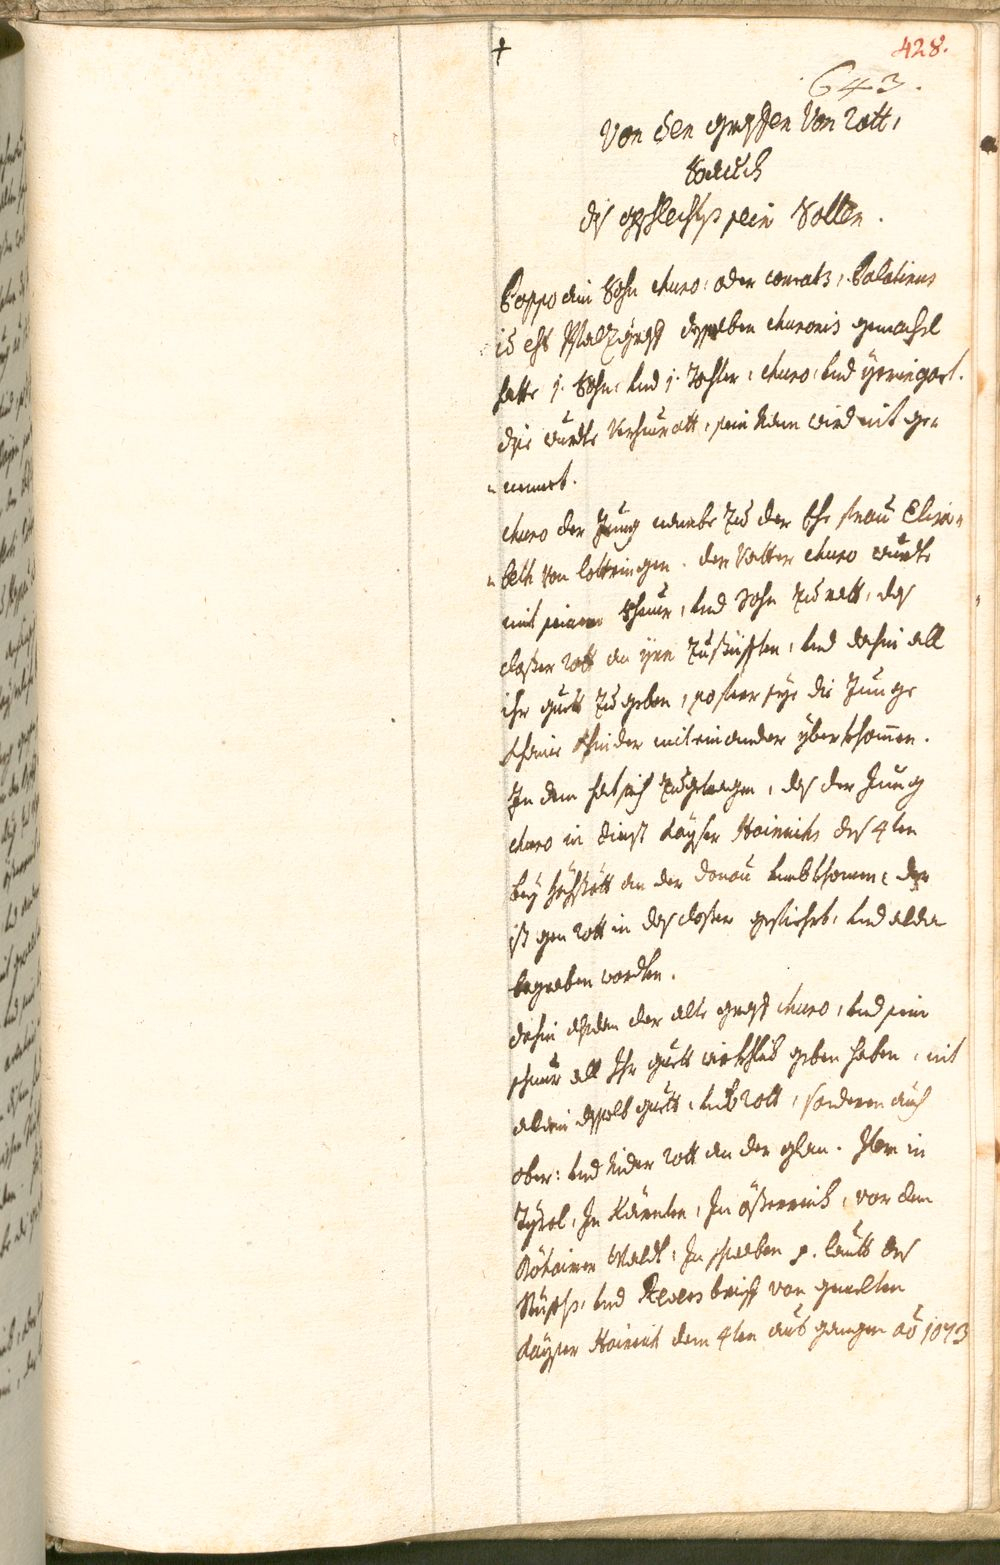 +
428.
643.
Von den graffen Von Rott,
so auch
diß geschlechts sein sollen.
Poppo ain Sohn Chuno: oder Conrats, Palatinus
id est Pfalzgraff desselben Chunonis gemachel
hatte 1. Sohn: und 1. Tochter: Chuno, und Yrmigart.
die wurdte verheuratt, sein Nam wird nit ge=
=nennet.
Chuno der Jung nambe zu der Ehe frau Elisa=
=beth von Lottringen. der Vatter Chuno wurdte
mit seiner Schnur, und Sohn zu rath, das
Closter Rott an Yhn zustüfften, und dahin all
ihr guett zu geben, so fern sye die Junge
khaine Khinder miteinander überkhommen.
In dem hat sich zugetragen, das der Jung
Chuno in dienst Kayser Hainrichs des 4ten
bey Hechstätt an der Donau umbkhommen: der
ist gen Rott in das Closter gefiehrt, und alda
begraben worden.
dahin alsdan der alte graff Chuno, und sein
schnur all Ihr guett würkhlich geben haben, nit
allein dasselb guett, umb Rott, sonderen auch
ober: und Nider Rott an der glan. Item in
Tyrol, In Kärnten, In Össterreich, vor dem
Böhaimer Waldt, In Schwaben p. lauth des
Stüffts, und Revers brieff von gemelten
Kayser Hainrich dem 4ten aus gangen aõ 1073